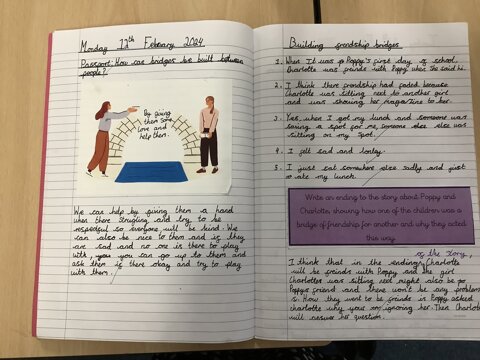 Monday 12th February 2024
Passport: How can bridges be built between
people?
By giving
them some
love and
help them.
We can help by giving them a hand
when there strugling and try to be
respectful so everyone will be kind. We
can also be nice to them and is they
are sad and no one is there to play
with, you can go up to them and
ask them is there okay and try to play
with them.
Building friendship bridges
1. When it was Poppy's first day of school
Charlotte was friends with Poppy when she said hi.
2. I think there friendship had faded because
Charlotte was sitting next to another girl
and was showing her magazine to her.
3. Yes, when I got my lunch and someone was
saving a spot for me, someone else was
sitting on my spot.
4. I felt sad and lonley.
5. I just sat somewhere else sadly and just
ate my lunch.
Write an ending to the story about Poppy and
Charlotte, showing how one of the children was a
bridge of friendship for another and why they acted
this way.
of the story,
I think that in the ending Charlotte
will be friends with Poppy and the girl
Charlotte was sitting next might also be
Poppys friend and there won't be any problem
s. How they went to be friends is Poppy asked
charlotte why your ignoring her. Then Charlotte
will answer her question.